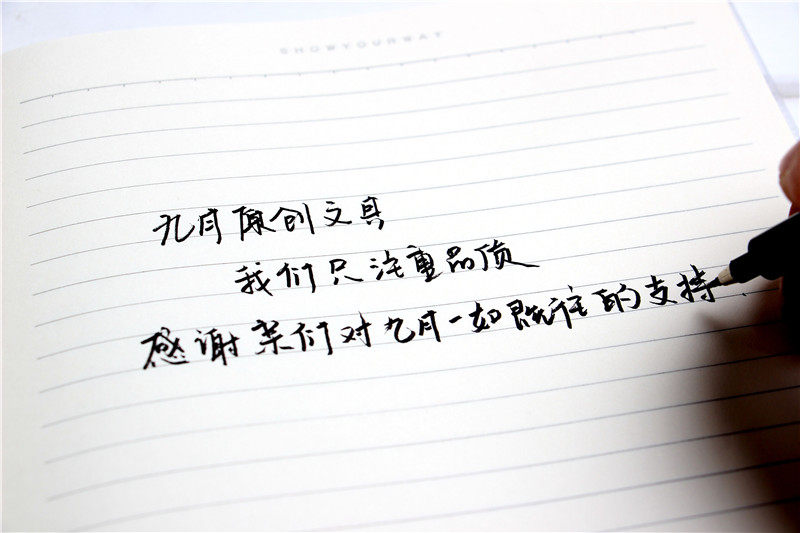 SHOWYOURWAY
九月原创文具
我们只注重品质
感谢亲们对九月一如既往的支持